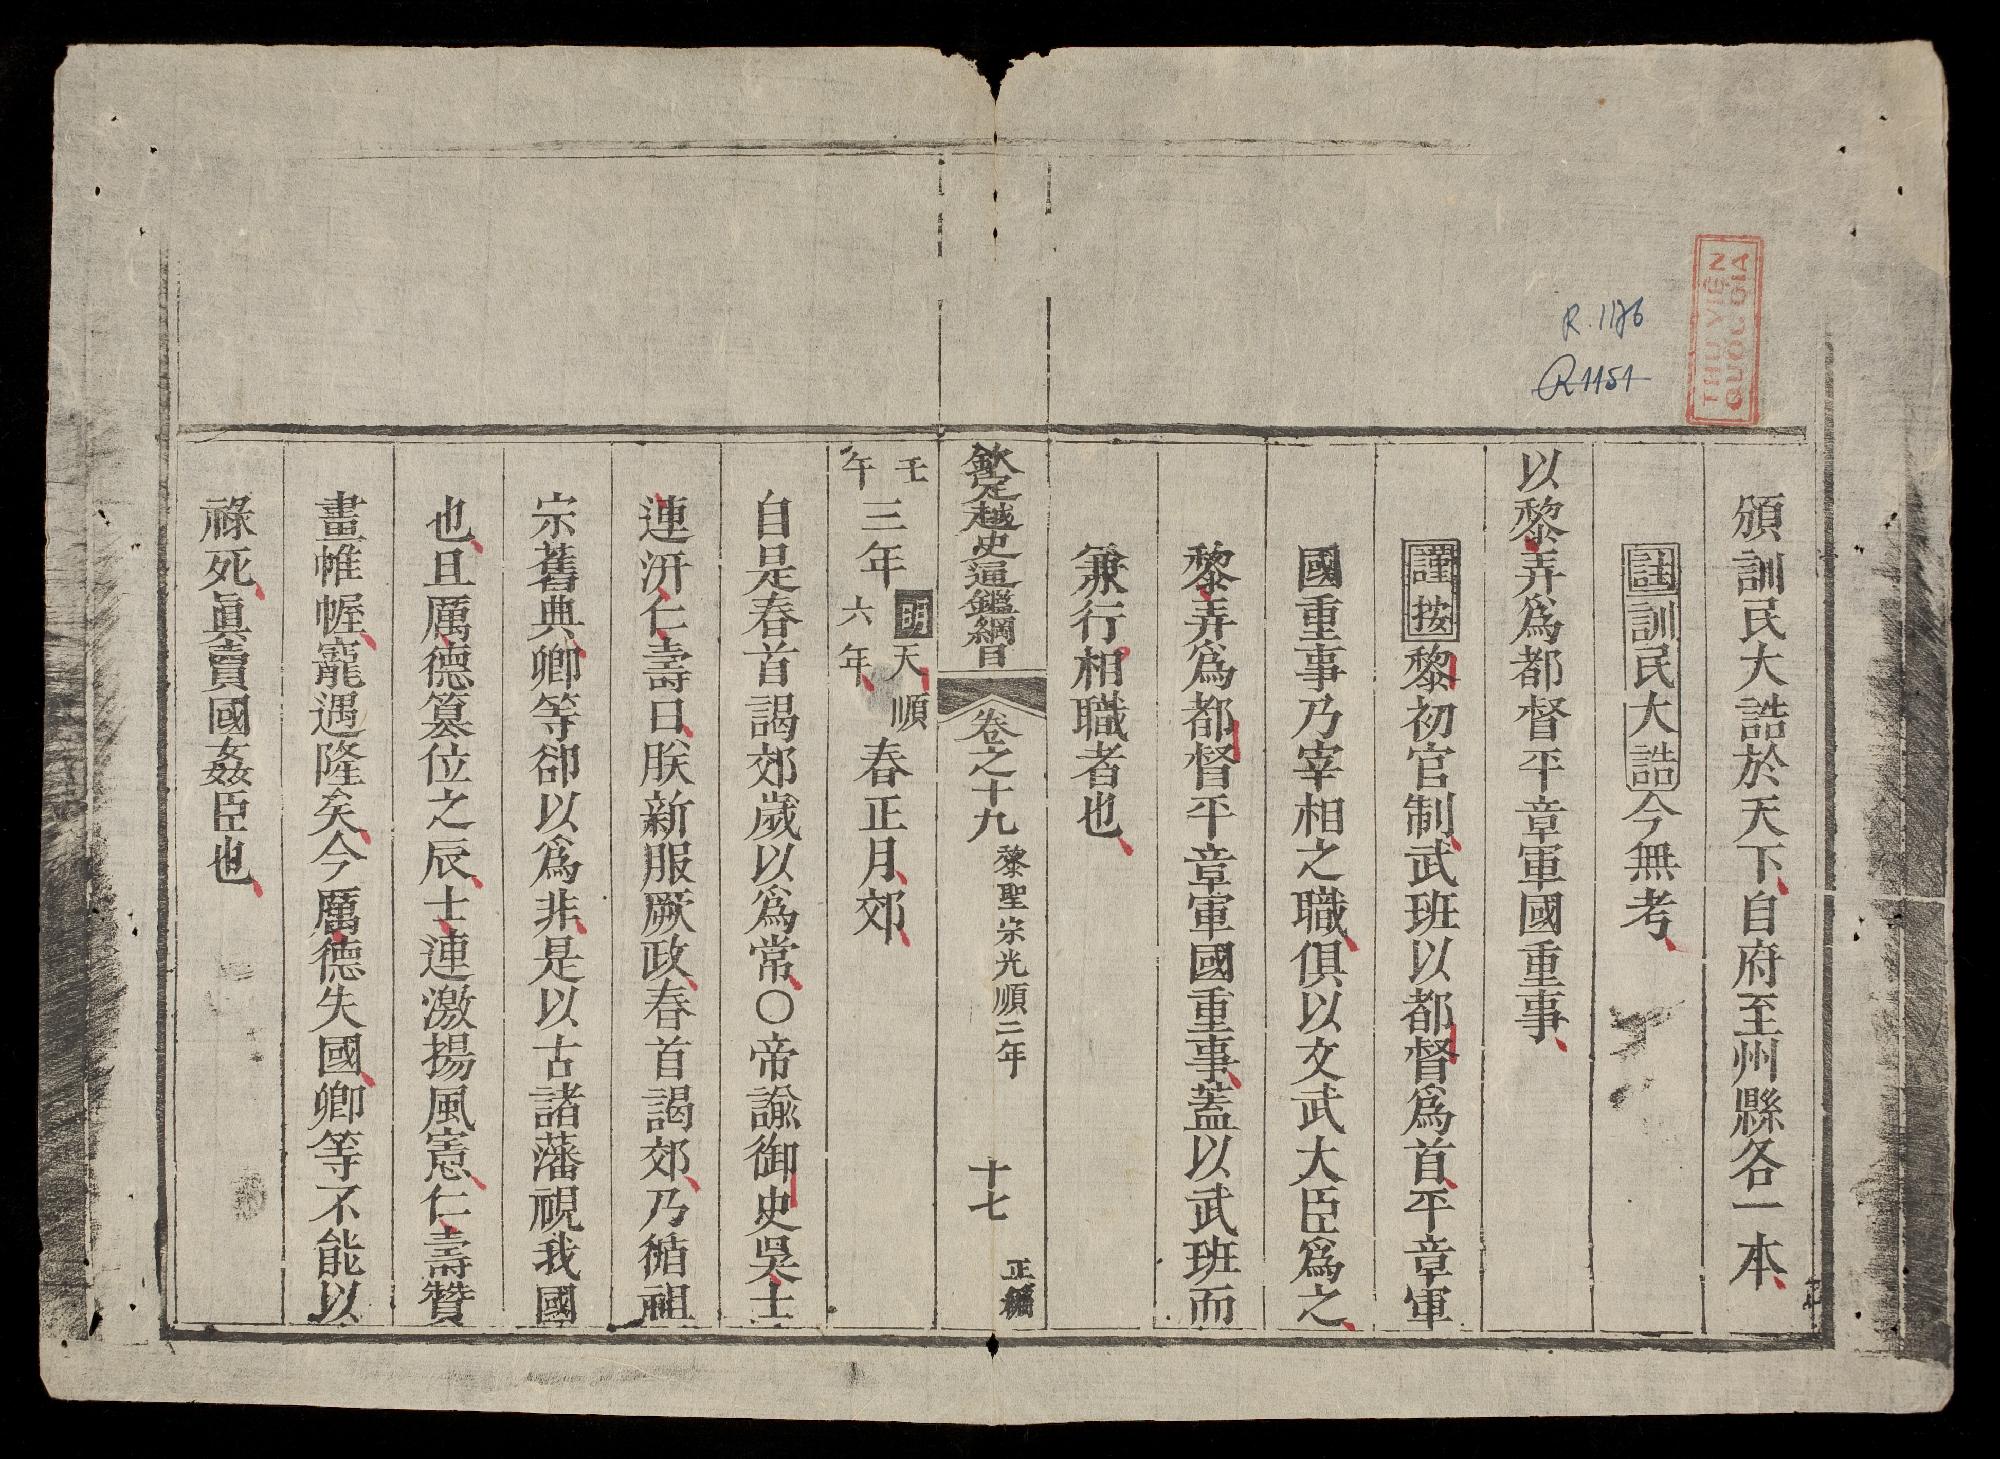 頒訓民大誥於天下自府至州縣各一本
註訓民大誥今無考
以黎弄爲都督平章軍國重事
謹按黎初官制武班以都督爲首平章軍
國重事乃宰相之職俱以文武大臣爲之
黎弄爲都督平章軍國重事蓋以武班而
兼行相職者也
欽定越史通鑑綱目 卷之十九 黎聖宗光順二年 十七 正編
壬午三年明天順六年春正月郊
自是春首謁郊歲以爲常〇帝諭御史吳士
連汧仁壽曰朕新服厥政春首謁郊乃循祖
宗舊典卿等卻以爲非是以古諸藩視我國
也且厲德簒位之辰士連激揚風憲仁壽贊
畫帷幄寵遇隆矣今厲德失國卿等不能以
祿死眞賣國姦臣也
THƯ VIỆN
QUỐC GIA
R.1176
R1151